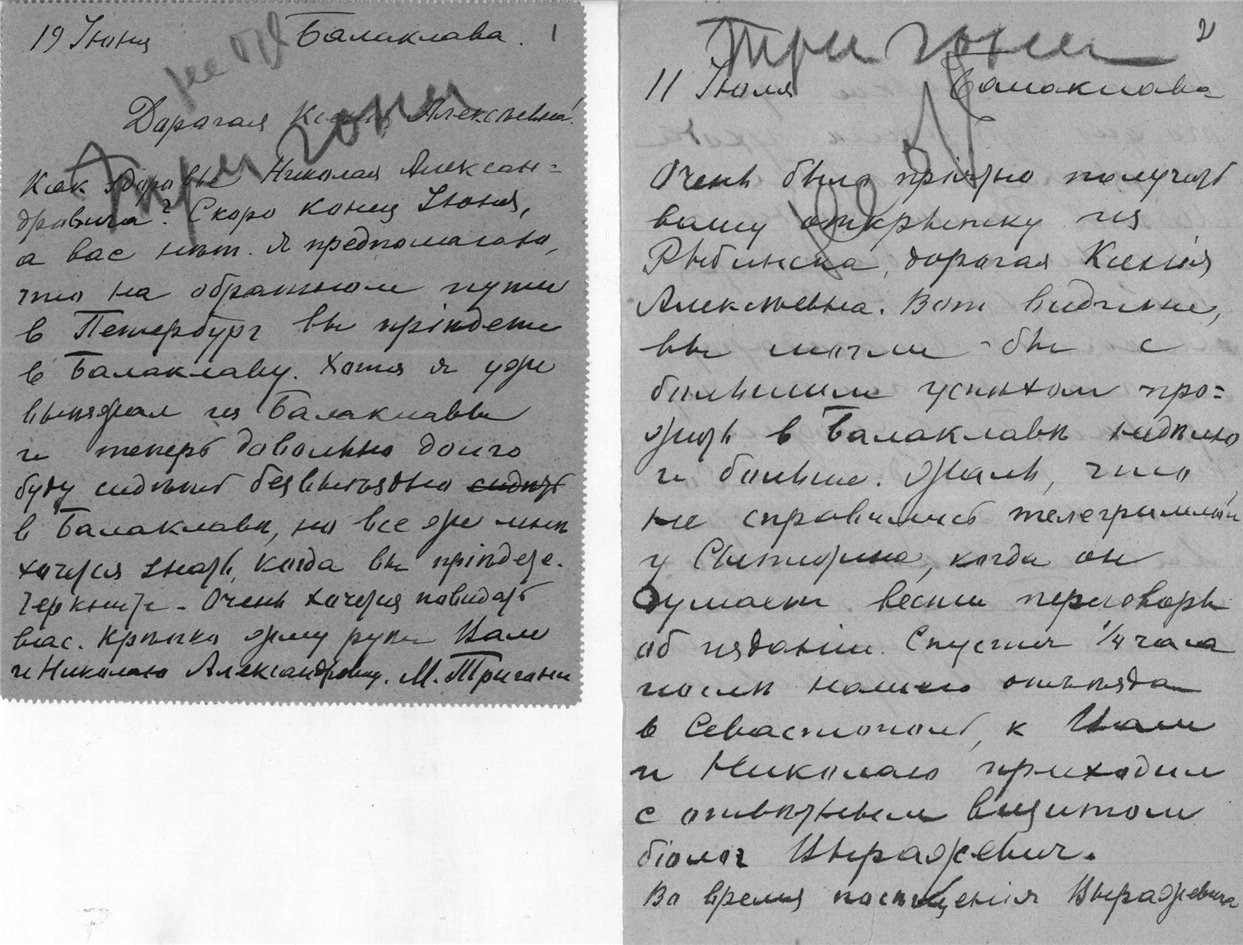 19 Іюня Балаклава. 1
Тригони
Дорогая Ксенія Алексѣевна!
Как здоровье Николая Алексан=
дровича? Скоро конец Іюня,
а вас нѣт. Я предполагаю,
что на обратном пути
в Петербург вы пріѣдете
в Балаклаву. Хотя я уже
выѣзжал из Балаклавы
и теперь довольно долго
буду сидѣть безвыѣздно сидѣть
в Балаклавѣ, но все же мнѣ
хочется знать, когда вы пріѣдете.
Черкните. Очень хочется повидать
вас. Крѣпко жму руки Вам
и Николаю Александровичу. М. Тригони
Тригони 2
11 Іюля Балаклава
Очень было пріятно получить
вашу открытку из
Рыбинска, дорогая Ксенія
Алексѣевна. Вот видите,
вы могли-бы с
большим успѣхом про=
жить в Балаклавѣ недѣлю
и больше. Жаль, что
не справились телеграммой
у, когда он
думает вести переговоры
об изданіи. Спустя 1/4 часа
послѣ нашего отъѣзда
в Севастополь, к Вам
и Николаю приходил
с отвѣтным визитом
біолог
Во время посѣщенія